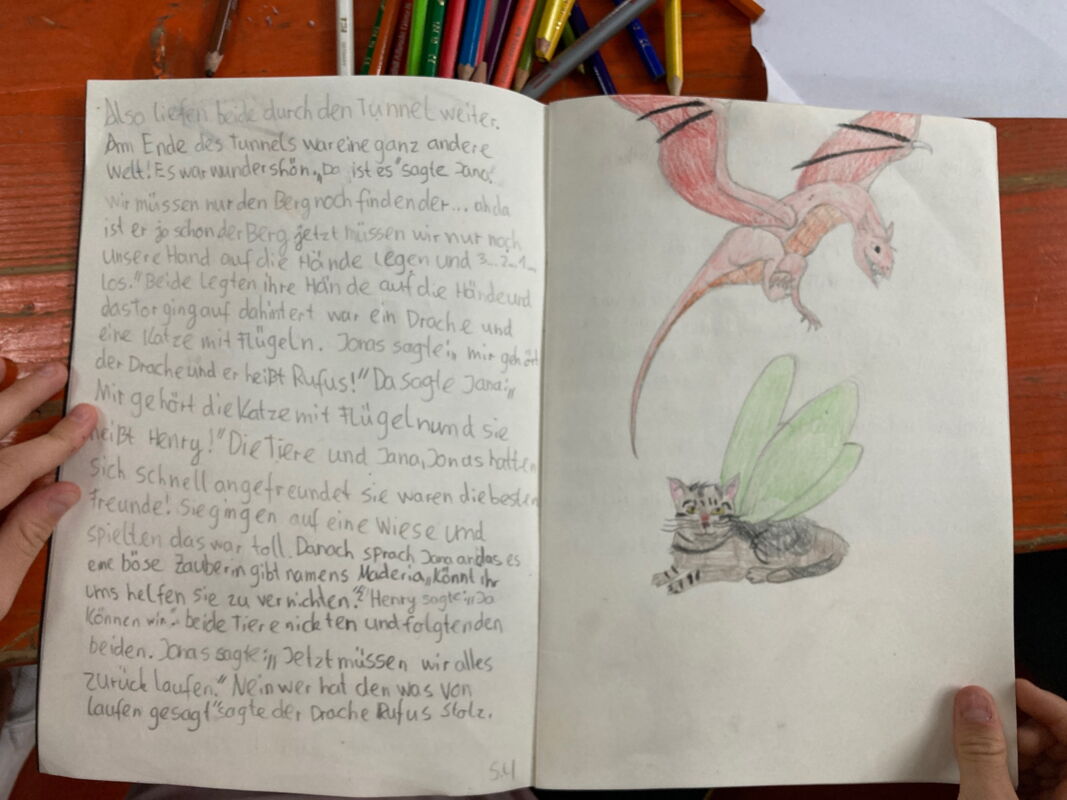 Also liefen beide durch den Tunnel weiter.
Am Ende des Tunnels war eine ganz andere
Welt! Es war wundershön. „Da ist es" sagte Jana!
Wir müssen nur den Berg noch finden der... ah da
ist er ja schon der Berg jetzt müssen wir nur noch
unsere Hand auf die Hände legen und 3...2...1...
los." Beide legten ihre Hände auf die Hände und
das tor ging auf dahintert war ein Drache und
eine Katze mit Flügeln. Jonas sagte:„ mir gehört
der Drache und er heißt Rufus!" Da sagte Jana:„
Mir gehört die Katze mit Flügeln und sie
heißt Henry!" Die Tiere und Jana, Jonas hatten
sich schnell angefreundet sie waren die besten
Freunde! Sie gingen auf eine Wiese und
spielten das war toll. Danach sprach Jana an das es
eine böse Zauberin gibt namens Maderia „könnt ihr
uns helfen sie zu vernichten." Henry sagte:„ Ja
können wir." beide Tiere nickten und folgten den
beiden. Jonas sagte:„ Jetzt müssen wir alles
zurück laufen." Nein wer hat den was von
laufen gesagt" sagte der Drache Rufus Stolz.
S.4